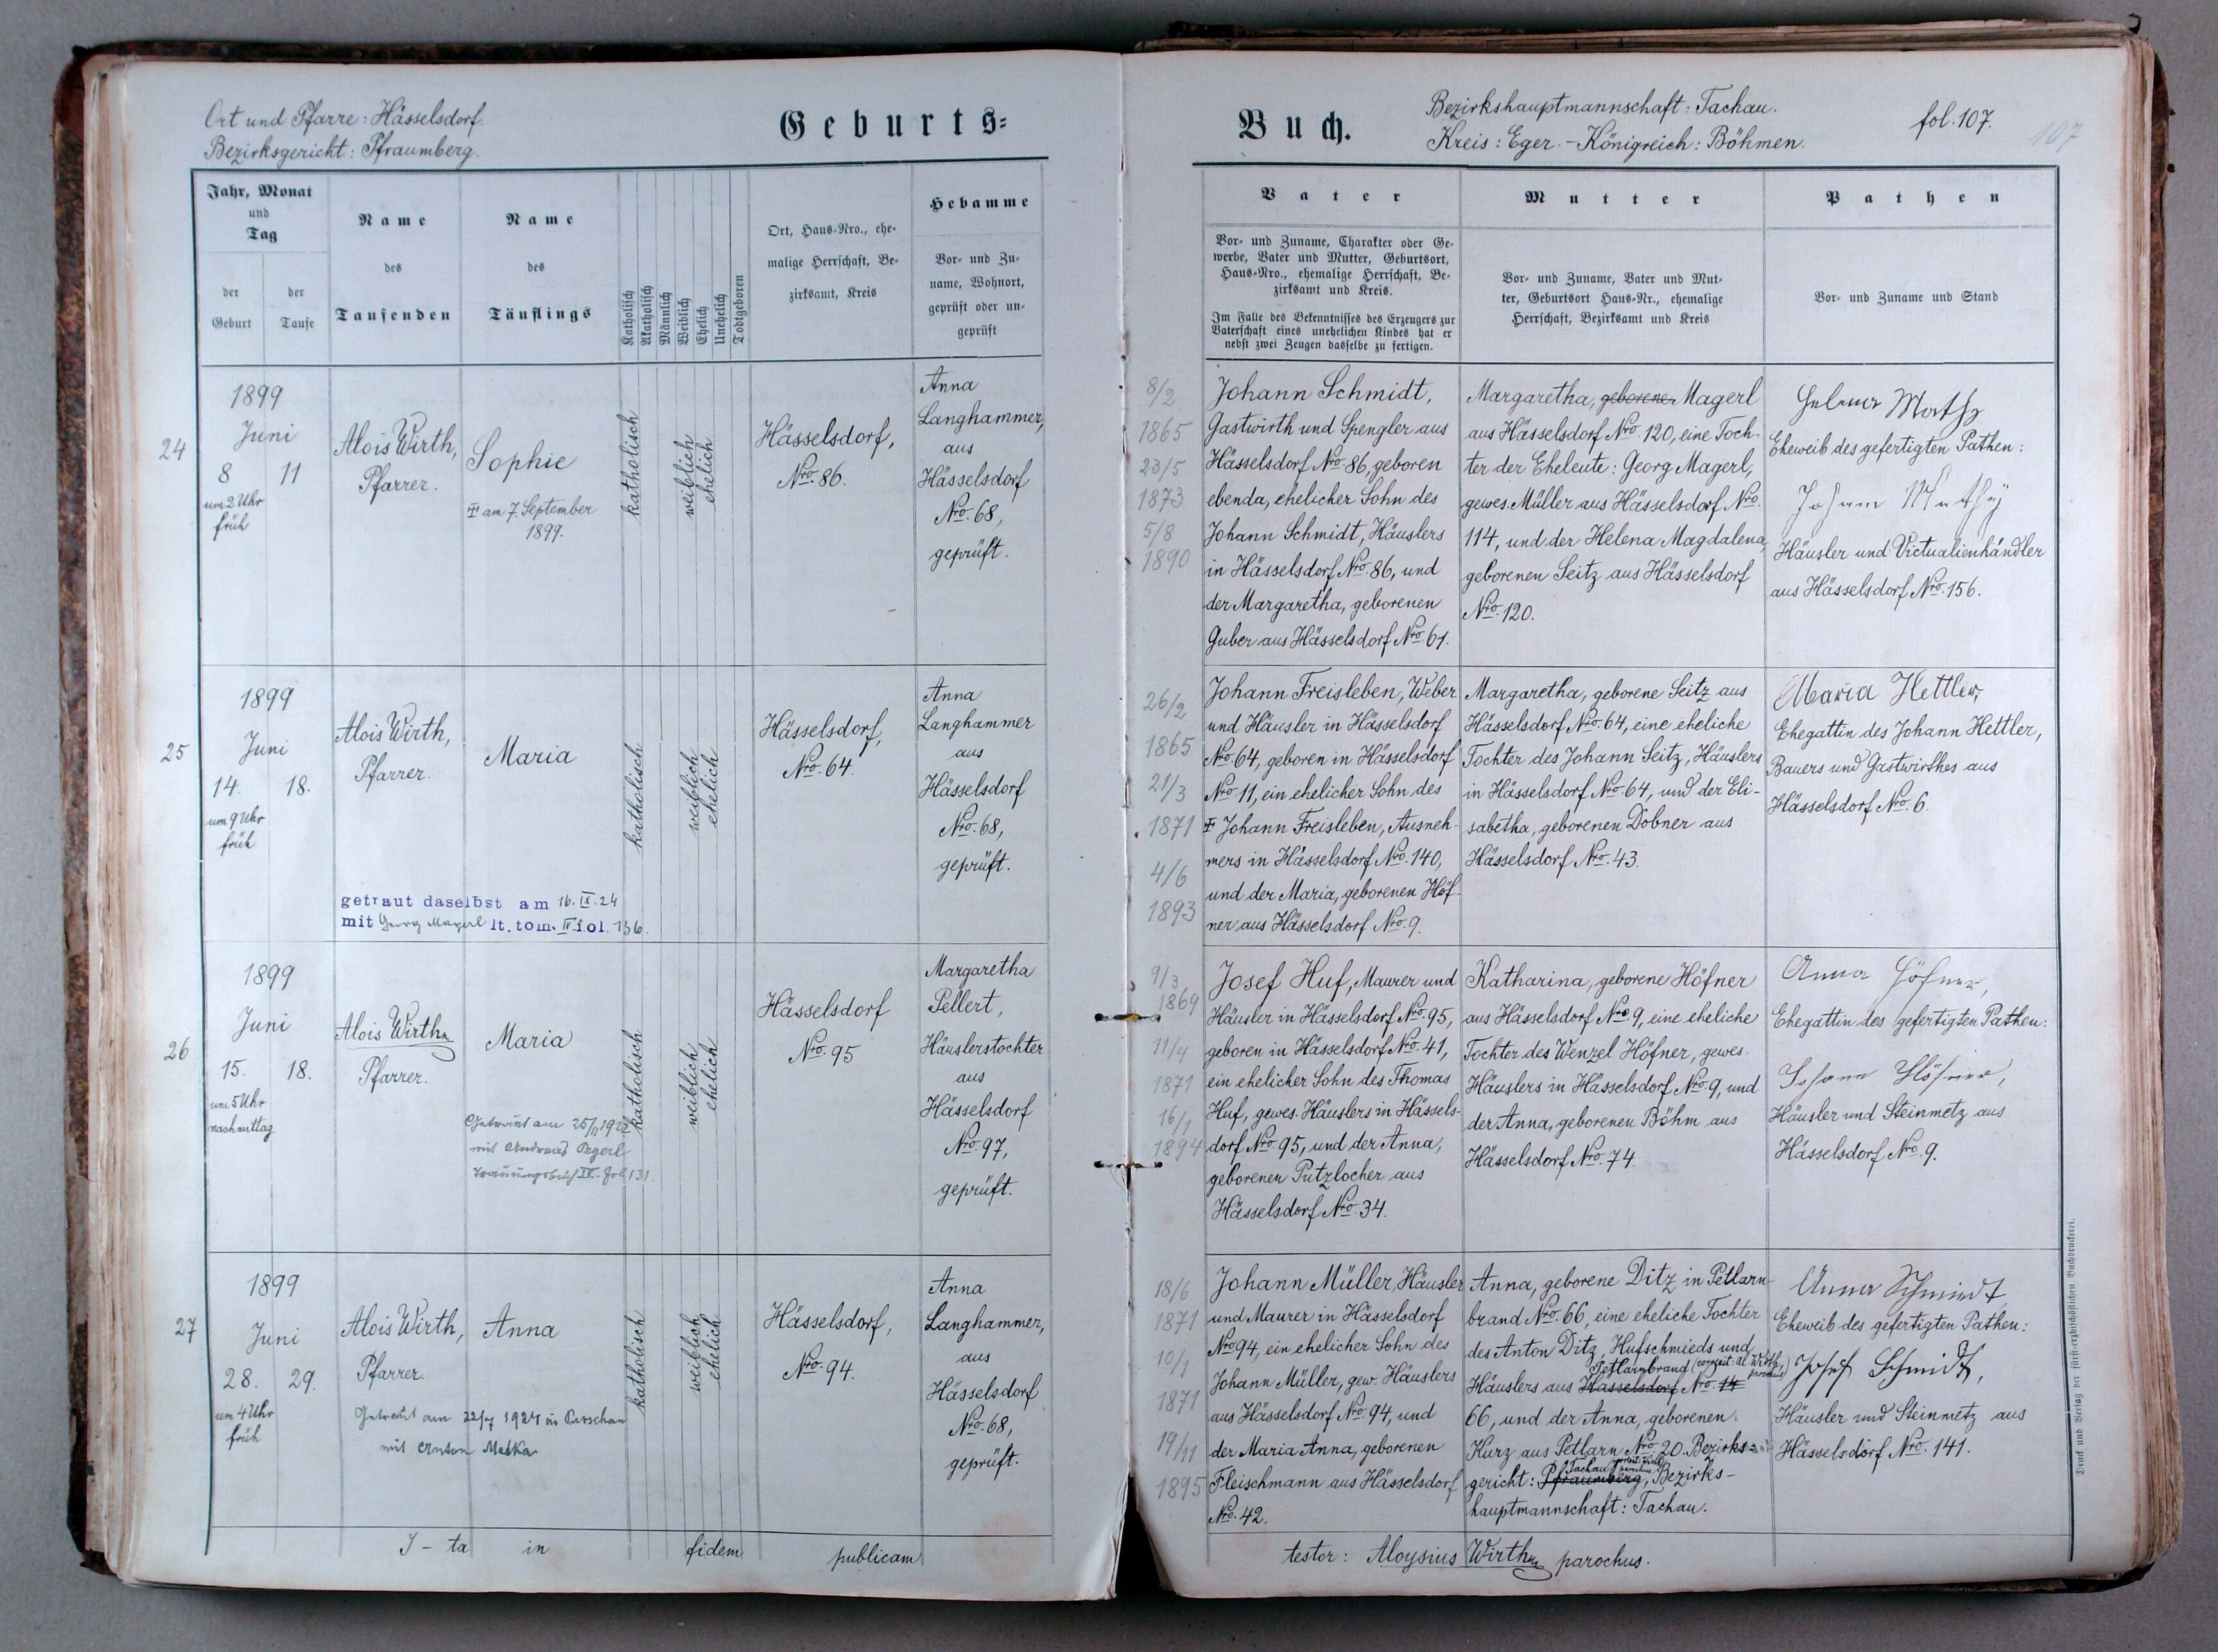 Ort und Pfarre: Hässelsdorf.
Bezirksgericht: Pfraumberg.
Geburts=
Jahr, Monat
und
Tag
der
Geburt
der
Taufe
Name
des
Taufenden
Name
des
Täuflings
Katholisch
Akatholisch
Männlich
Weiblich
Ehelich
Unehelich
Todtgeboren
Ort, Haus-Nro., ehe-
malige Herrschaft, Be-
zirksamt, Kreis
Hebamme
Vor- und Zu-
name, Wohnort,
geprüft oder un-
geprüft
24
1899
Juni
8 11
um 2 Uhr
früh
Alois Wirth,
Pfarrer.
Sophie
am 7. September
1899.
katholisch
weiblich
ehelich
Hässelsdorf,
Nro. 86.
Anna
Langhammer,
aus
Hässelsdorf
Nro. 68,
geprüft.
25
1899
Juni
14. 18.
um 9 Uhr
früh
Alois Wirth,
Pfarrer.
Maria
katholisch
weiblich
ehelich
Hässelsdorf,
Nro. 64.
Anna
Langhammer
aus
Hässelsdorf
Nro. 68,
geprüft.
getraut daselbst am 16. IX. 24
mit Georg Magerl lt. tom. IV. fol. 136.
26
1899
Juni
15. 18.
um 5 Uhr
nachmittag
Alois Wirth
Pfarrer.
Maria
Getraut am 25/11 1922
mit Andreas
Trauungsbuch IV. Fol. 131.
katholisch
weiblich
ehelich
Hässelsdorf
Nro. 95
Margaretha
Pellert,
Häuslerstochter
aus
Hässelsdorf
Nro. 97,
geprüft.
27
1899
Juni
28. 29.
um 4 Uhr
früh
Alois Wirth,
Pfarrer.
Anna
Getraut am 22/7 1924 in
mit Anton
katholisch
weiblich
ehelich
Hässelsdorf,
Nro. 94.
Anna
Langhammer,
aus
Hässelsdorf
Nro. 68,
geprüft.
I-ta in fidem publicam
Buch.
Bezirkshauptmannschaft: Tachau.
Kreis: Eger. - Königreich: Böhmen.
fol. 107.
107
Vater
Vor- und Zuname, Charakter oder Ge-
werbe, Vater und Mutter, Geburtsort,
Haus-Nro., ehemalige Herrschaft, Be-
zirksamt und Kreis.
Im Falle des Bekenntnisses des Erzeugers zur
Vaterschaft eines unehelichen Kindes hat er
nebst zwei Zeugen dasselbe zu fertigen.
Mutter
Vor- und Zuname, Vater und Mut-
ter, Geburtsort Haus-Nr., ehemalige
Herrschaft, Bezirksamt und Kreis
Pathen
Vor- und Zuname und Stand
8/2
1865
23/5
1873
5/8
1890
Johann Schmidt,
Gastwirth und Spengler aus
Hässelsdorf Nro. 86, geboren
ebenda, ehelicher Sohn des
Johann Schmidt, Häuslers
in Hässelsdorf Nro. 86, und
der Margaretha, geborenen
Guber aus Hässelsdorf Nro. 61.
Margaretha, geborenen Magerl
aus Hässelsdorf Nro. 120, eine Toch-
ter der Eheleute: Georg Magerl,
gewes. Müller aus Hässelsdorf Nro.
114, und der Helena Magdalena,
geborenen Seitz aus Hässelsdorf
Nro. 120.
Eheweib des gefertigten Pathen:
Häusler und Victualienhändler
aus Hässelsdorf Nro. 156.
26/2
1865
21/3
1871
4/6
1893
Johann Freisleben, Weber
und Häusler in Hässelsdorf
Nro. 64, geboren in Hässelsdorf
Nro. 11, ein ehelicher Sohn des
Johann Freisleben, Ausneh-
mers in Hässelsdorf Nro. 140,
und der Maria, geborenen Höf-
ner aus Hässelsdorf Nro. 9.
Margaretha, geborene Seitz aus
Hässelsdorf Nro. 64, eine eheliche
Tochter des Johann Seitz, Häuslers
in Hässelsdorf Nro. 64, und der Eli-
sabetha, geborenen Dobner aus
Hässelsdorf Nro. 43.
Maria Hettler,
Ehegattin des Johann Hettler,
Bauers und Gastwirthes aus
Hässelsdorf Nro. 6.
9/3
1869
11/4
1871
16/1
1894
Josef Huf, Maurer und
Häusler in Hässelsdorf Nro. 95,
geboren in Hässelsdorf Nro. 41,
ein ehelicher Sohn des Thomas
Huf, gewes. Häuslers in Hässels-
dorf Nro. 95, und der Anna,
geborenen Putzlocher aus
Hässelsdorf Nro. 34.
Katharina, geborene Höfner
aus Hässelsdorf Nro. 9, eine eheliche
Tochter des Wenzel Höfner, gewes.
Häuslers in Hässelsdorf Nro. 9, und
der Anna, geborenen Böhm aus
Hässelsdorf Nro. 74.
Anna Höfner,
Ehegattin des gefertigten Pathen:
Johann Höfner,
Häusler und Steinmetz aus
Hässelsdorf Nro. 9.
18/6
1871
10/1
1871
19/11
1895
Johann Müller, Häusler
und Maurer in Hässelsdorf
Nro. 94, ein ehelicher Sohn des
Johann Müller, gew. Häuslers
aus Hässelsdorf Nro. 94, und
der Maria Anna, geborenen
Fleischmann aus Hässelsdorf
Nro. 42.
Anna, geborene Ditz in Petlarn-
brand Nro. 66, eine eheliche Tochter
des Anton Ditz, Hufschmieds und
Petlarnbrand (correxit: Al. Wirth, parochus)
Häuslers aus Hässelsdorf Nro. 14
66, und der Anna, geborenen
Kurz aus Petlarn Nro. 20. Bezirks=
Tachau
gericht: Pfraumberg, Bezirks-
hauptmannschaft: Tachau.
Anna Schmidt
Eheweib des gefertigten Pathen:
Josef Schmidt,
Häusler und Steinmetz aus
Hässelsdorf Nro. 141.
testor: Aloysius Wirth parochus.
Druck und Verlag der fürst-erzbischöflichen Buchdruckerei.